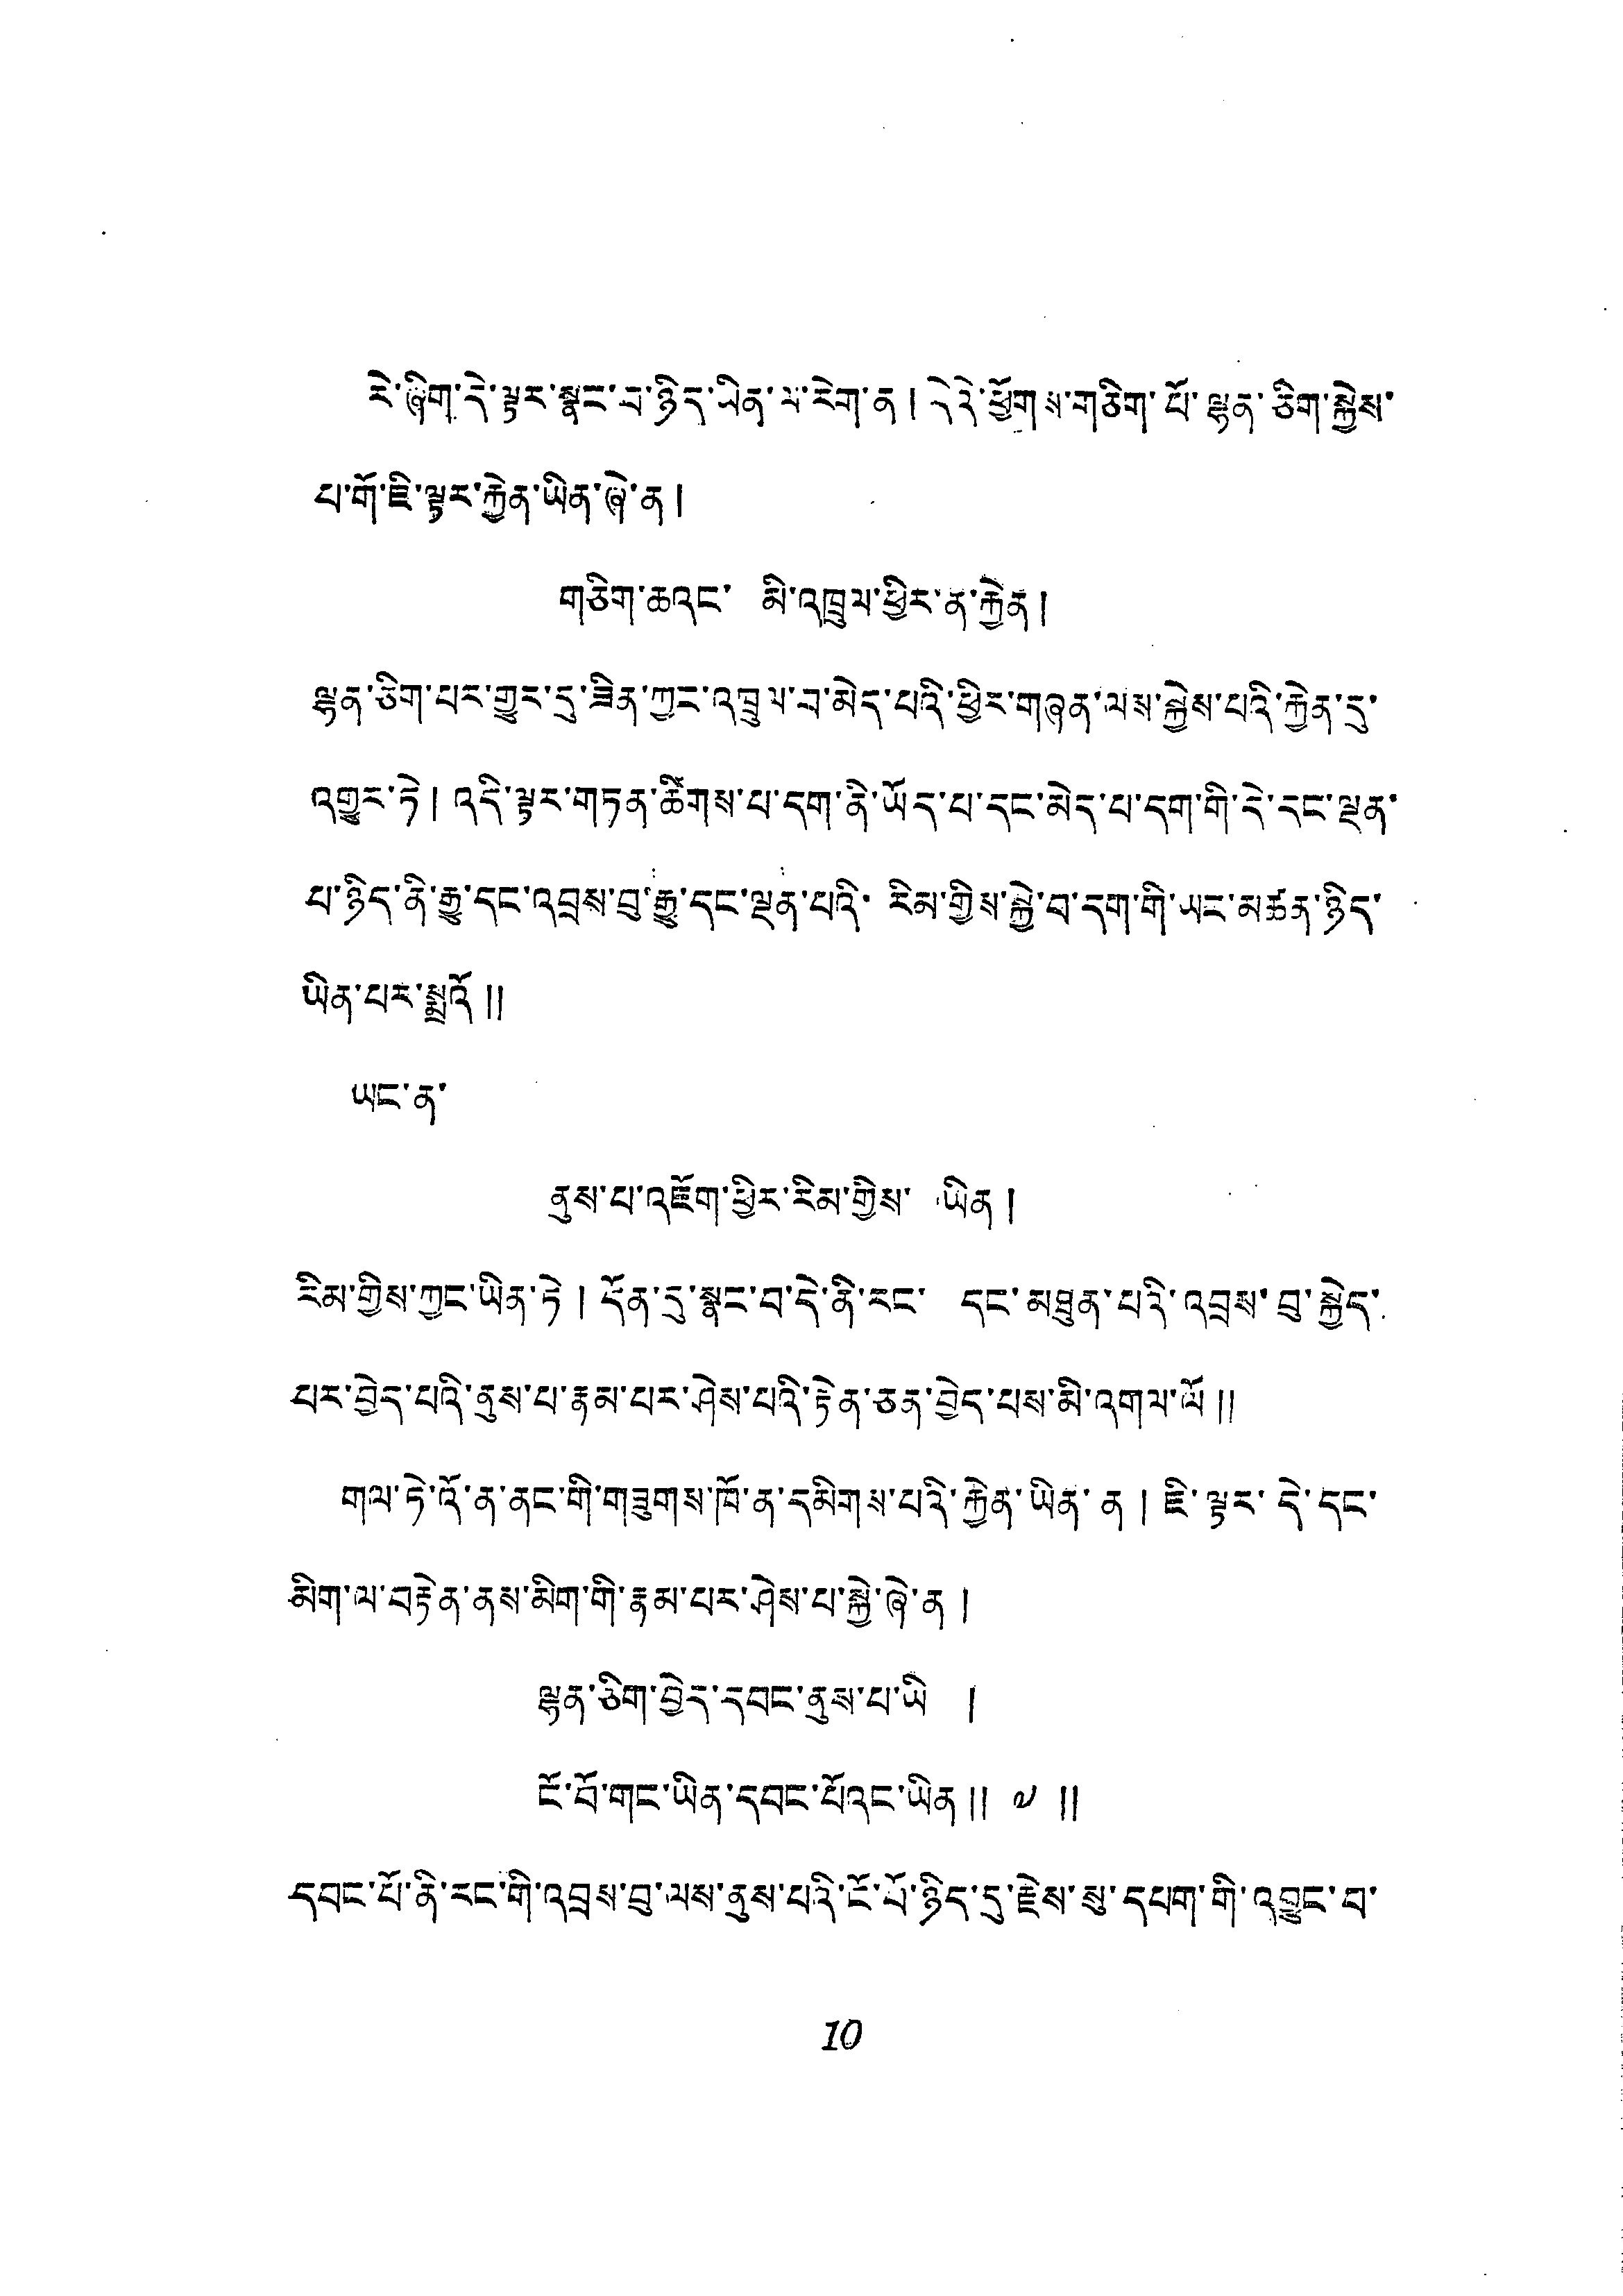 རེ་ཞིག་དེ་ལྟར་སྣང་བ་ཉིད་ཡིན་ལ་རེག་ན། དེའི་ཕྱོགས་གཅིག་པོ་ལྷན་ཅིག་སྐྱེས་
པ་གོ་ཇི་ལྟར་རྐྱེན་ཡིན་ཞེ་ན།
གཅིག་ཆའང་ མི་འཁྲུལ་ཕྱིར་ན་རྐྱེན།
ལྷན་ཅིག་པར་གྱུར་དུ་ཟིན་ཀྱང་འཁྲུལ་བ་མེད་པའི་ཕྱིར་གཞན་ལས་སྐྱེས་པའི་རྐྱེན་དུ་
འགྱུར་ཏེ། འདི་ལྟར་གཏན་ཚིགས་པ་དག་ནི་ཡོད་པ་དང་མེད་པ་དག་གི་དེ་དང་ལྡན་
པ་ཉིད་ནི་རྒྱུ་དང་འབྲས་བུ་རྒྱུ་དང་ལྡན་པའི་ རིམ་གྱིས་སྐྱེ་བ་དག་གི་ཡང་མཚན་ཉིད་
ཡིན་པར་སྨྲའོ༎
ཡང་ན་
ནུས་པ་འཇོག་ཕྱིར་རིམ་གྱིས་ ཡིན།
རིམ་གྱིས་ཀྱང་ཡིན་ཏེ། དོན་དུ་སྣང་བ་དེ་ནི་རང་ དང་མཐུན་པའི་འབྲས་བུ་སྐྱེད་
པར་བྱེད་པའི་ནུས་པ་རྣམ་པར་ཤེས་པའི་རྟེན་ཅན་བྱེད་པས་མི་འགལ་ལོ༎
གལ་ཏེ་འོ་ན་ནང་གི་གཟུགས་ཁོ་ན་དམིགས་པའི་རྐྱེན་ཡིན་ན། ཇི་ལྟར་དེ་དང་
མིག་ལ་བརྟེན་ནས་མིག་གི་རྣམ་པར་ཤེས་པ་སྐྱེ་ཞེ་ན།
ལྷན་ཅིག་བྱེད་དབང་ནུས་པ་ཡི །
ངོ་བོ་གང་ཡིན་དབང་པོའང་ཡིན༎ ༧ ༎
དབང་པོ་ནི་རང་གི་འབྲས་བུ་ལས་ནུས་པའི་ངོ་པོ་ཉིད་དུ་རྗེས་སུ་དཔག་གི་འབྱུང་བ་
10